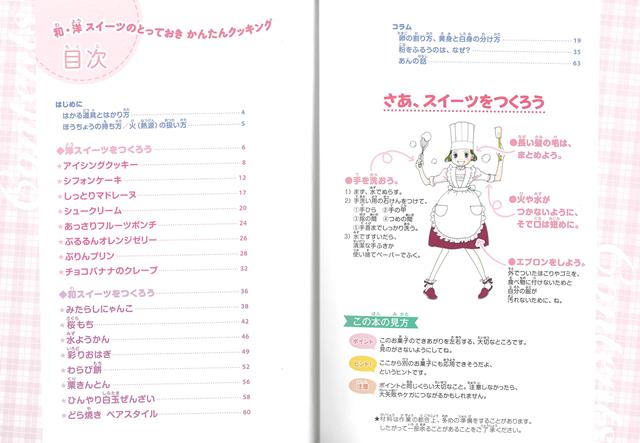 和・洋 スイーツのとっておき かんたんクッキング
目次
はじめに
はかる道具とはかり方 4
ほうちょうの持ち方／火（熱源）の扱い方 5
◆洋スイーツをつくろう 6
★アイシングクッキー 8
★シフォンケーキ 12
★しっとりマドレーヌ 17
★シュークリーム 20
★あっさりフルーツポンチ 24
★ぷるるんオレンジゼリー 26
★ぷりんプリン 28
★チョコバナナのクレープ 32
◆和スイーツをつくろう 36
★みたらしにゃんこ 38
★桜もち 42
★水ようかん 46
★彩りおはぎ 49
★わらび餅 52
★栗きんとん 56
★ひんやり白玉ぜんざい 58
★どら焼き ペアスタイル 60
コラム
卵の割り方、黄身と白身の分け方 19
粉をふるうのは、なぜ？ 35
あんの話 63
さあ、スイーツをつくろう
●長い髪の毛は、
まとめよう。
●手を洗おう。
1）まず、水でぬらす。
2）手洗い用の石けんをつけて、
①手ひら ②手の甲
③指の間 ④つめの間
⑤手首までしっかり洗う。
3）水ですすいだら、
清潔な手ふきか
使い捨てペーパーでふく。
●火や水が
つかないように、
そで口は短めに。
●エプロンをしよう。
外でついたほこりやゴミを、
食べ物に付けないためと
自分の服が
汚れないために、ね。
この本の見方
ポイント このお菓子のできあがりを左右する、大切なところです。
見のがさないようにしてね。
ヒント！ ここから別のお菓子にも応用できそうだよ、
というヒントです。
注意 ポイントと同じくらい大切なこと。注意しなかったら、
大失敗やケガにつながるかもしれません。
★材料は作業の都合上、多めの準備をすることがあります。
したがって一部余ることがあることをご了承ください。